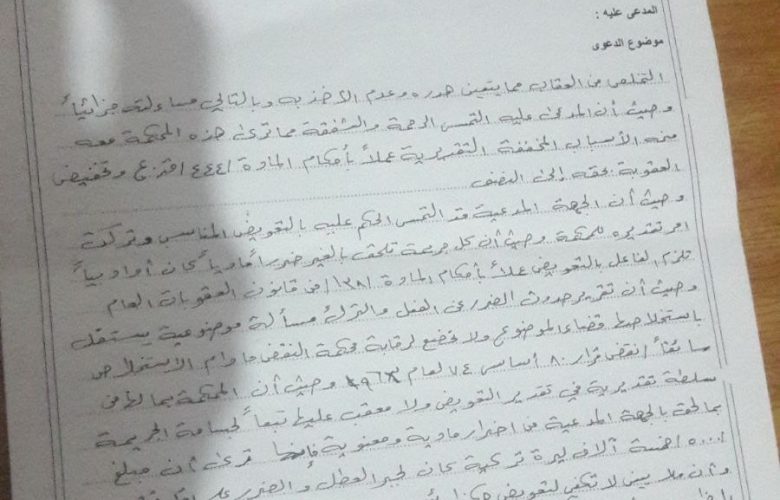 المدعى عليه :
موضوع الدعوى
التملص من العقاب مما يتعين هدره وعدم الأخذ به وبالتالي مساءلته جزائياً
وحيث أن المدعى عليه التمس الرحمة والشفقة مما ترى هذه المحكمة معه
منحه الأسباب المخففة التقديرية عملاً بأحكام المادة ٢٤٤ / ق ع وتخفيض
العقوبة بحقه إلى النصف
وحيث أن الجهة المدعية قد التمس الحكم عليه بالتعويض المناسب وتركت
امر تقديره للمحكمة وحيث أن كل جريمة تلحق بالغير ضرراً مادياً كان أو ادبياً
تلزم الفاعل بالتعويض عملاً بأحكام المادة /١٣٨/ من قانون العقوبات العام
وحيث أن تقرير حدوث الضرر عن الفعل والترك مسألة موضوعية يستقل
باستخلاصها قضاة الموضوع ولا تخضع لرقابة محكمة النقض ما دام الاستخلاص
سائغاً / نقض قرار ٨٠ أساسي ٧٤ لعام وحيث أن المحكمة بما لها من
سلطة تقديرية في تقدير التعويض ولا معقب عليها تبعاً لجسامة الجريمة
بما لحق بالجهة المدعية من اضرار مادية ومعنوية فإنها ترى أن مبلغ
/٥٠٠٠/ خمسة آلاف ليرة تركية كان لجبر العطل والضرر
وأن ملابس لا تكفي لتعويض